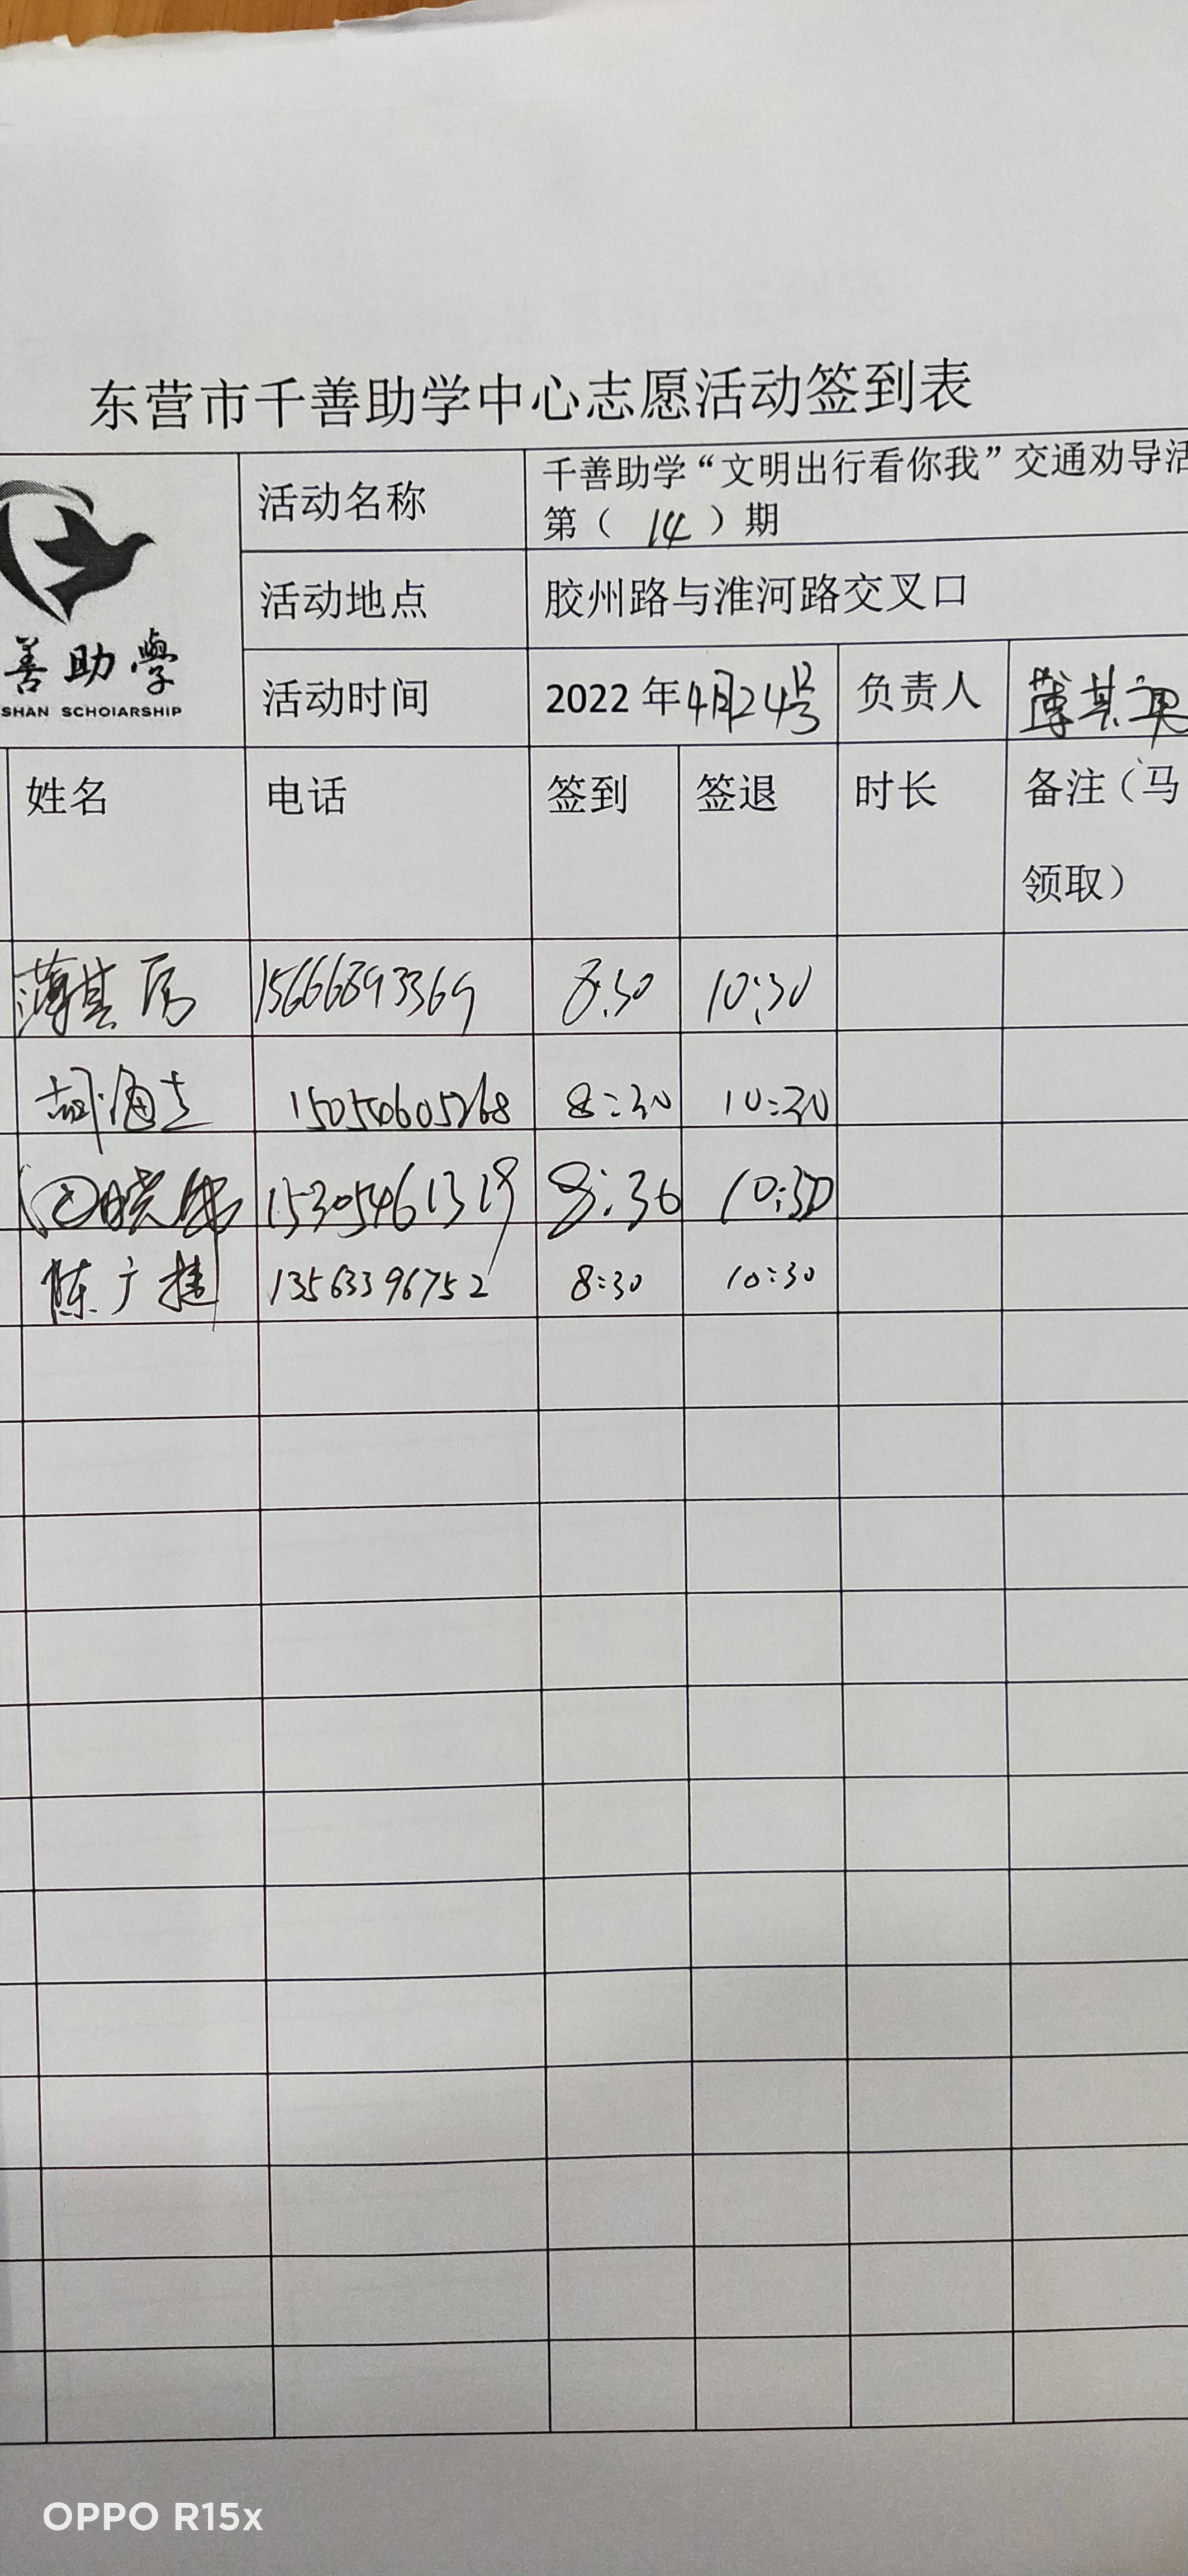 东营市千善助学中心志愿活动签到表
活动名称
千善助学“文明出行看你我”交通劝导活
第（ 14 ）期
善助學
SHAN SCHOIARSHIP
活动地点
胶州路与淮河路交叉口
活动时间
2022 年4月24号
负责人
薄其
姓名 电话 签到 签退 时长 备注（马
领取）
薄其 15666893369 8:30 10:30
胡海 15054605268 8:30 10:30
晓 15305461319 8:30 10:30
陈广捷 13563396752 8:30 10:30
OPPO R15x